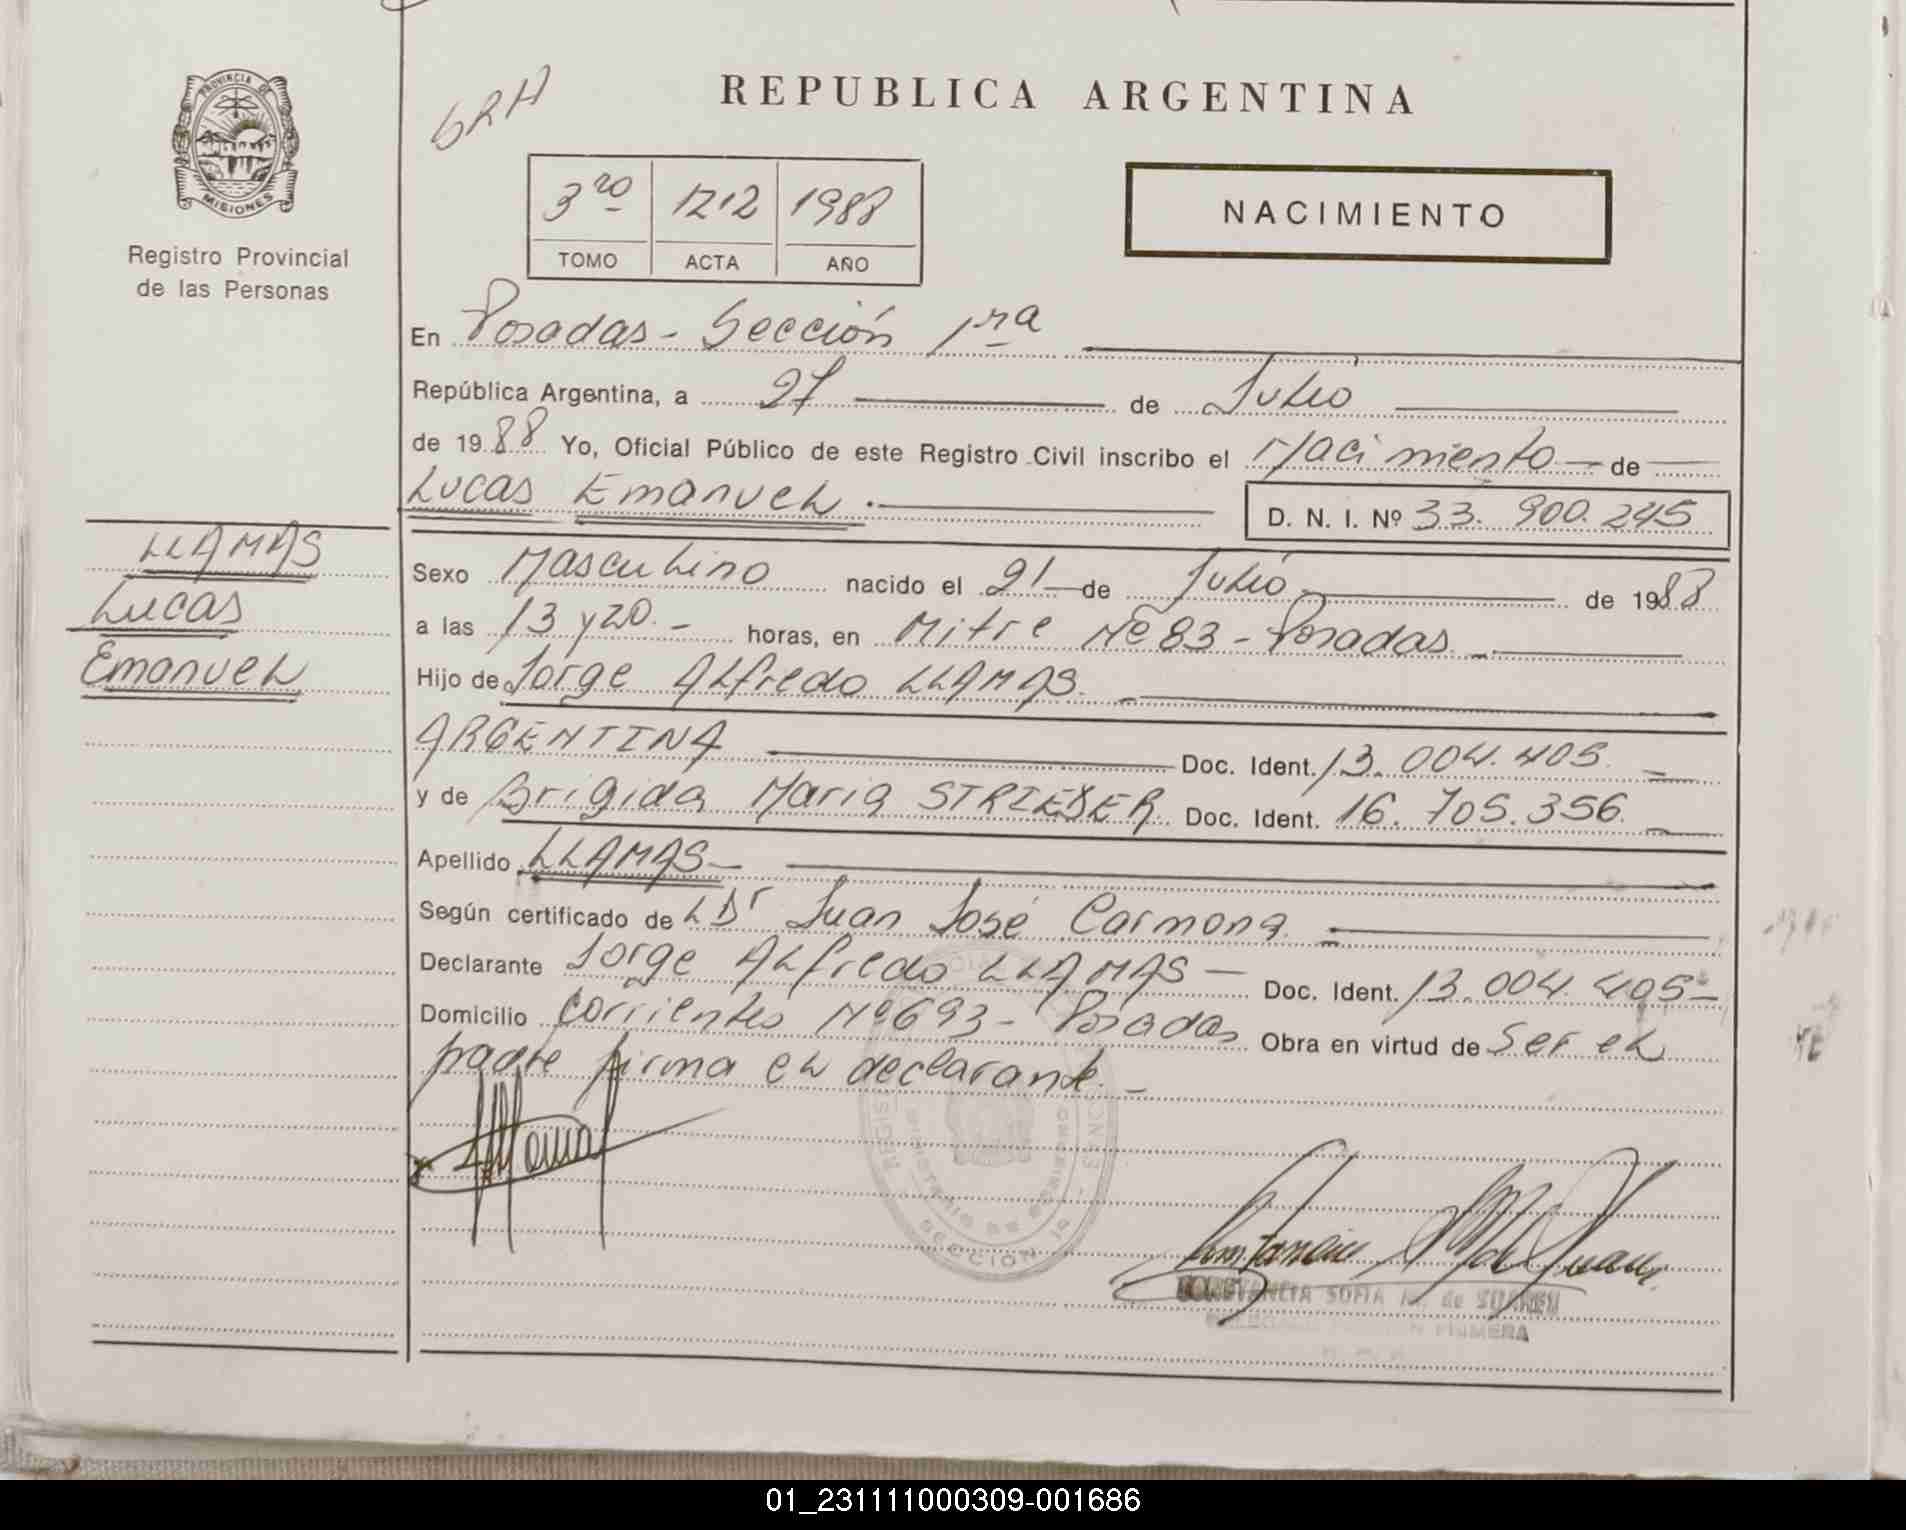 GRH
REPUBLICA ARGENTINA
PROVINCIA DE
MISIONES
Registro Provincial
de las Personas
3ro 1212 1988
TOMO ACTA AÑO
NACIMIENTO
En Posadas - Sección 1ra
República Argentina, a 27 de Julio
de 1988 Yo, Oficial Público de este Registro Civil inscribo el Nacimiento - de
Lucas Emanuel. D. N. I. Nº 33. 900. 245
LLAMAS
Lucas
Emanuel
Sexo Masculino nacido el 21 de Julio de 1988
a las 13 y 20. - horas, en Mitre Nº 83 - Posadas. -
Hijo de Jorge Alfredo LLAMAS. -
ARGENTINA Doc. Ident. 13. 004. 405. -
y de Brigida Maria STRIEDER Doc. Ident. 16. 705. 356. -
Apellido LLAMAS -
Según certificado de L Dr Juan José Carmona. -
Declarante Jorge Alfredo LLAMAS - Doc. Ident. 13. 004. 405 -
Domicilio Corrientes Nº 693 - Posadas Obra en virtud de Ser el
padre firma el declarante. -
SECCION 1a
CONSTANCIA SOFIA M. de SUAREZ
PRIMERA
01_231111000309-001686